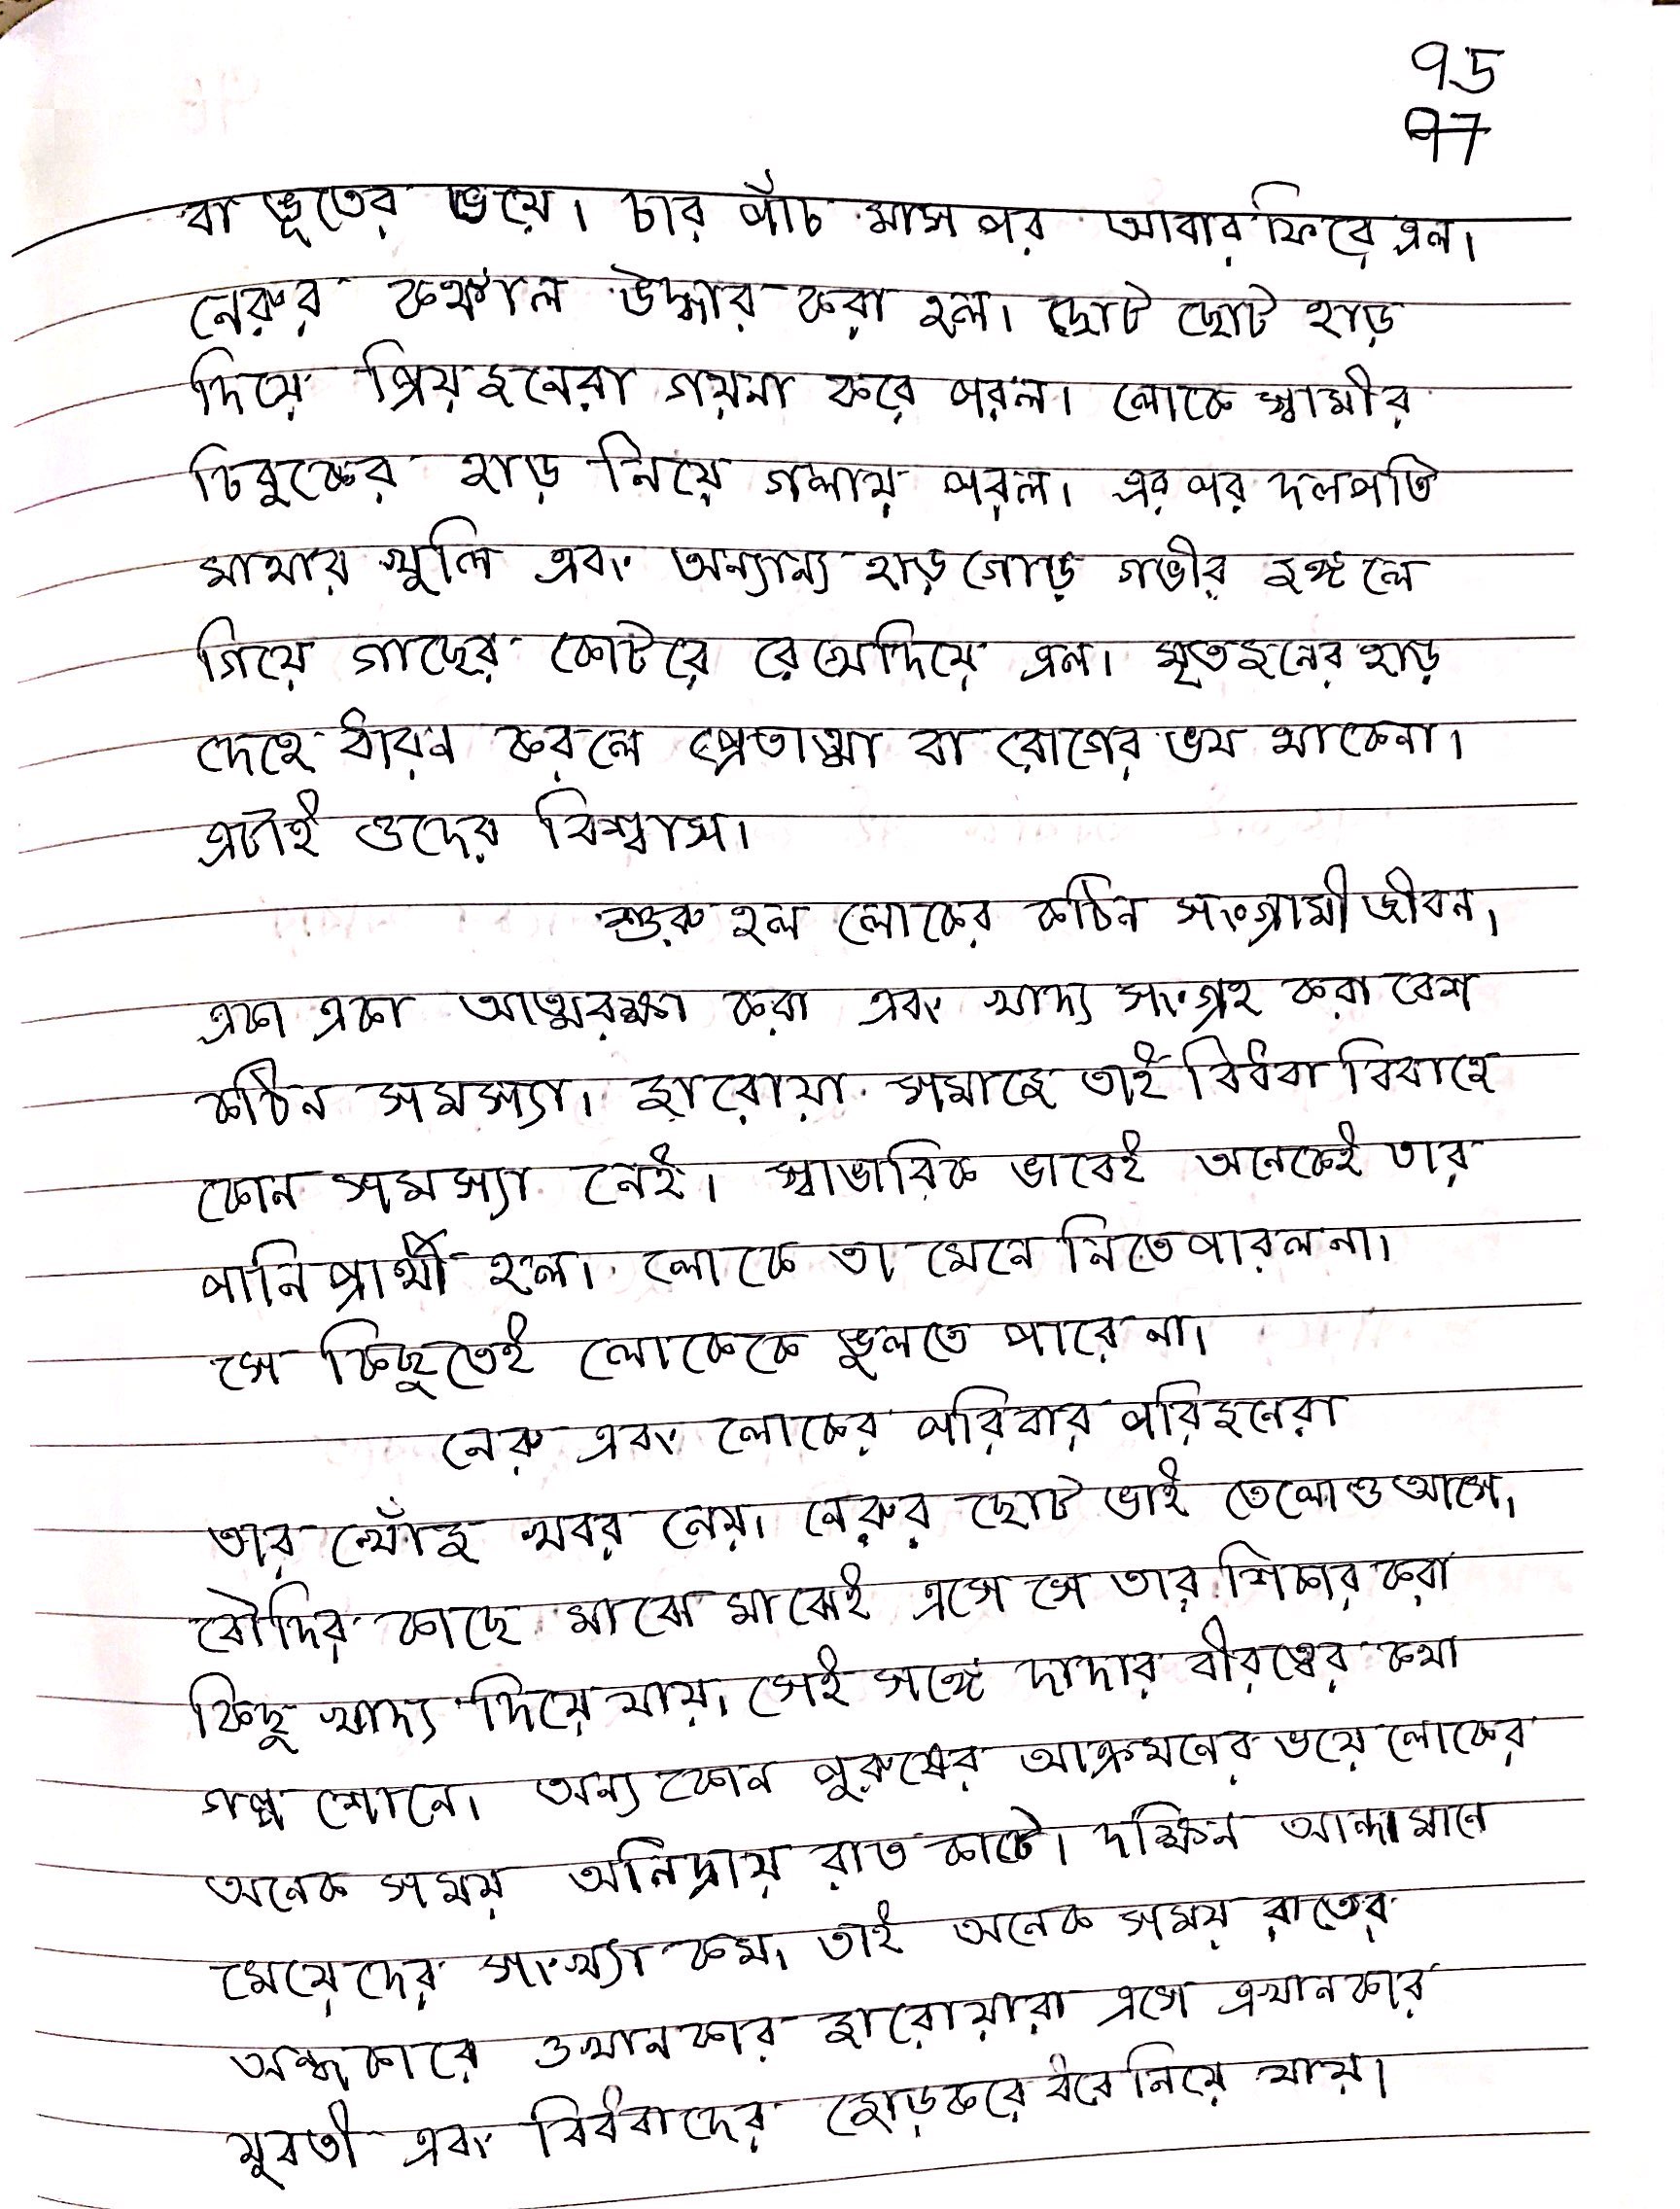 95
97
বা ভূতের ভয়ে। চার পাঁচ মাস পর আবার ফিরে এল।
নেরুর কঙ্কাল উদ্ধার করা হল। ছোট ছোট হাড়
দিয়ে প্রিয়জনেরা গয়না করে পরল। লোকে স্বামীর
চিবুকের হাড় নিয়ে গলায় পরল। এর পর দলপতি
মাথার খুলি এবং অন্যান্য হাড়গোড় গভীর জঙ্গলে
গিয়ে গাছের কোটরে রেখেদিয়ে এল। মৃতজনের হাড়
দেহে ধারন করলে প্রেতাত্মা বা রোগের ভয় থাকেনা।
এটাই ওদের বিশ্বাস।
শুরু হল লোকের কঠিন সংগ্রামী জীবন।
একা একা আত্মরক্ষা করা এবং খাদ্য সংগ্রহ করা বেশ
কঠিন সমস্যা। জারোয়া সমাজে তাই বিধবা বিবাহে
কোন সমস্যা নেই। স্বাভাবিক ভাবেই অনেকেই তার
পানিপ্রার্থী হল। লোকে তা মেনে নিতে পারলনা।
সে কিছুতেই লোকেকে ভুলতে পারে না।
নেরু এবং লোকের পরিবার পরিজনেরা
তার খোঁজ খবর নেয়। নেরুর ছোট ভাই তেলোও আসে।
বৌদির কাছে মাঝে মাঝেই এসে সে তার শিকার করা
কিছু খাদ্য দিয়ে যায়। সেই সঙ্গে দাদার বীরত্বের কথা
গল্প শোনে। অন্য কোন পুরুষের আক্রমনের ভয়ে লোকের
অনেক সময় অনিদ্রায় রাত কাটে। দক্ষিন আন্দামানে
মেয়েদের সংখ্যা কম। তাই অনেক সময় রাতের
অন্ধকারে ওখানকার জারোয়ারা এসে এখানকার
যুবতী এবং বিধবাদের জোড়করে ধরে নিয়ে যায়।